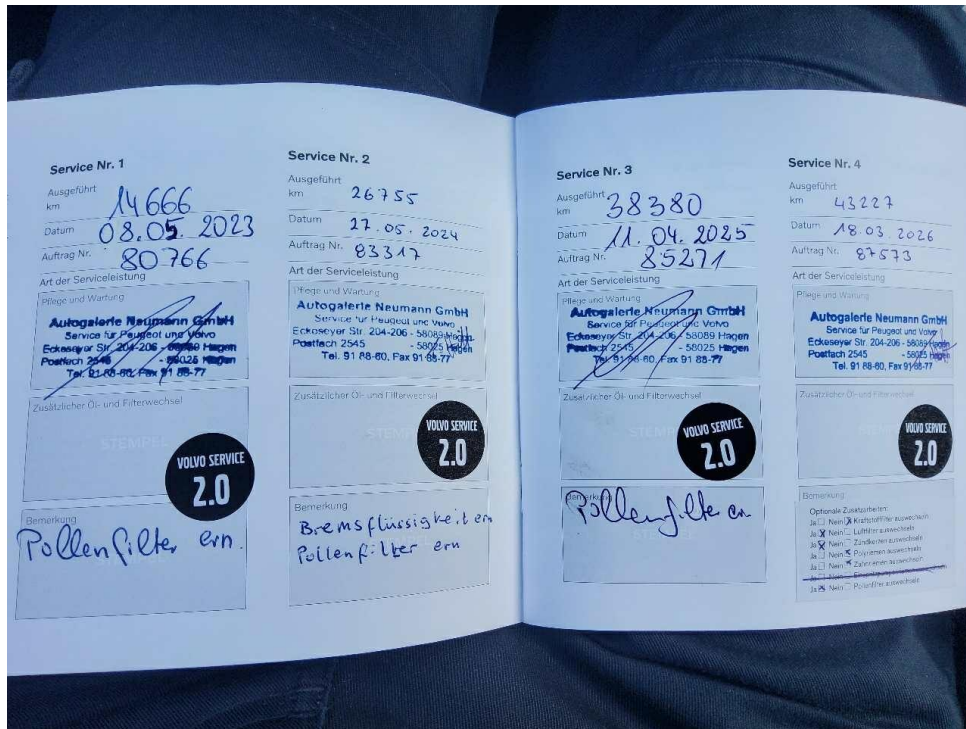 Service Nr. 1
Ausgeführt
km 14666
Datum 08.05.2023
Auftrag Nr. 80766
Art der Serviceleistung
Pflege und Wartung
Autogalerie Neumann GmbH
Service für Peugeot und Volvo
Eckeseyer Str. 204-206 - 58089 Hagen
Postfach 2545 - 58025 Hagen
Tel. 91 88-60, Fax 91 88-77
Zusätzlicher Öl- und Filterwechsel
STEMPEL
VOLVO SERVICE
2.0
Bemerkung
Pollenfilter ern.
Service Nr. 2
Ausgeführt
km 26755
Datum 27.05.2024
Auftrag Nr. 83317
Art der Serviceleistung
Pflege und Wartung
Autogalerie Neumann GmbH
Service für Peugeot und Volvo
Eckeseyer Str. 204-206 - 58089 Hagen
Postfach 2545 - 58025 Hagen
Tel. 91 88-60, Fax 91 88-77
Zusätzlicher Öl- und Filterwechsel
VOLVO SERVICE
2.0
Bemerkung
Bremsflüssigkeit ern
Pollenfilter ern
Service Nr. 3
Ausgeführt
km 38380
Datum 11.04.2025
Auftrag Nr. 85271
Art der Serviceleistung
Pflege und Wartung
Autogalerie Neumann GmbH
Service für Peugeot und Volvo
Eckeseyer Str. 204-206 - 58089 Hagen
Postfach 2545 - 58025 Hagen
Tel. 91 88-60, Fax 91 88-77
Zusätzlicher Öl- und Filterwechsel
VOLVO SERVICE
2.0
Bemerkung
Pollenfilter ern
Service Nr. 4
Ausgeführt
km 43227
Datum 18.03.2026
Auftrag Nr. 87573
Art der Serviceleistung
Pflege und Wartung
Autogalerie Neumann GmbH
Service für Peugeot und Volvo
Eckeseyer Str. 204-206 - 58089 Hagen
Postfach 2545 - 58025 Hagen
Tel. 91 88-60, Fax 91 88-77
Zusätzlicher Öl- und Filterwechsel
VOLVO SERVICE
2.0
Bemerkung
Optionale Zusatzarbeiten:
Ja Nein Kraftstofffilter auswechseln
Ja Nein Luftfilter auswechseln
Ja Nein Zündkerzen auswechseln
Ja Nein Polyriemen auswechseln
Ja Nein Zahnriemen auswechseln
Ja Nein
Ja Nein Pollenfilter auswechseln